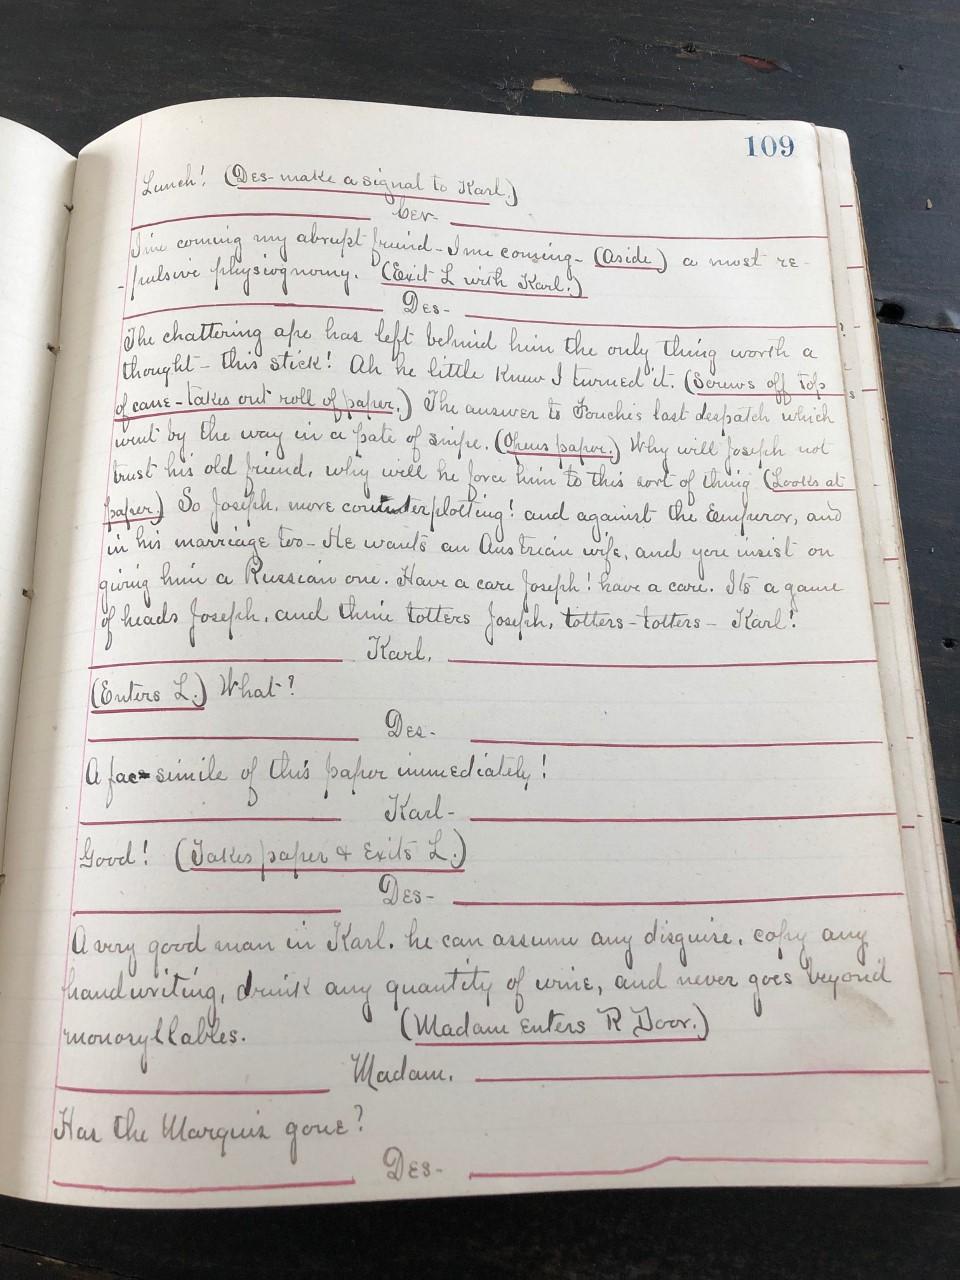 109
Lunch! (Des- make a signal to Karl.)
Cer-
I'me coming my abrupt friend - I'me coming - (Aside) a most re-
-pulsive physiognomy. (Exit L with Karl.)
Des-
The chattering ape has left behind him the only thing worth a
thought - this stick! Ah he little knew I turned it. (Screws off top
of cane - takes out roll of paper.) The answer to Fouche's last despatch which
went by the way in a pate of snipe. (Opens paper.) Why will Joseph not
trust his old friend, why will he force him to this sort of thing (Looks at
paper.) So Joseph, more counterplotting! and against the Emperor, and
in his marriage too - He wants an Austrian wife, and you insist on
giving him a Russian one. Have a care Joseph! have a care. Its a game
of heads Joseph, and thine totters Joseph, totters - totters - Karl!
Karl.
(Enters L.) What?
Des-
A fac simile of this paper immediately!
Karl-
Good! (Takes paper & Exits L.)
Des-
A very good man in Karl. he can assume any disguise, copy any
handwriting, drink any quantity of wine, and never goes beyond
monosyllables. (Madam enters R Door.)
Madam.
Has the Marquis gone?
Des-